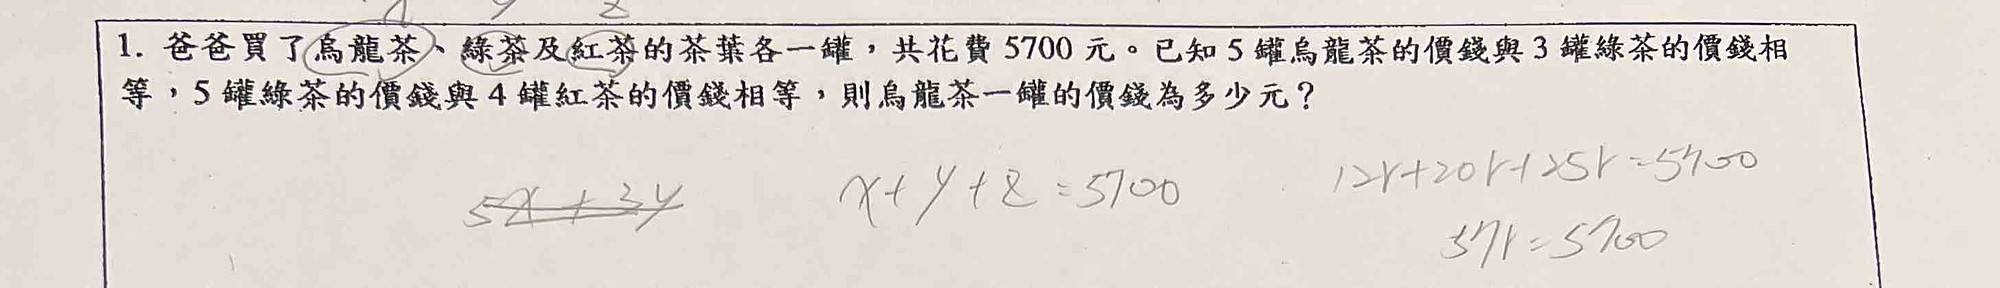 x y z
1. 爸爸買了烏龍茶、綠茶及紅茶的茶葉各一罐，共花費 5700 元。已知 5 罐烏龍茶的價錢與 3 罐綠茶的價錢相
等，5 罐綠茶的價錢與 4 罐紅茶的價錢相等，則烏龍茶一罐的價錢為多少元？
5x + 3y
x + y + z = 5700
12r+20r+25r=5700
57r=5700